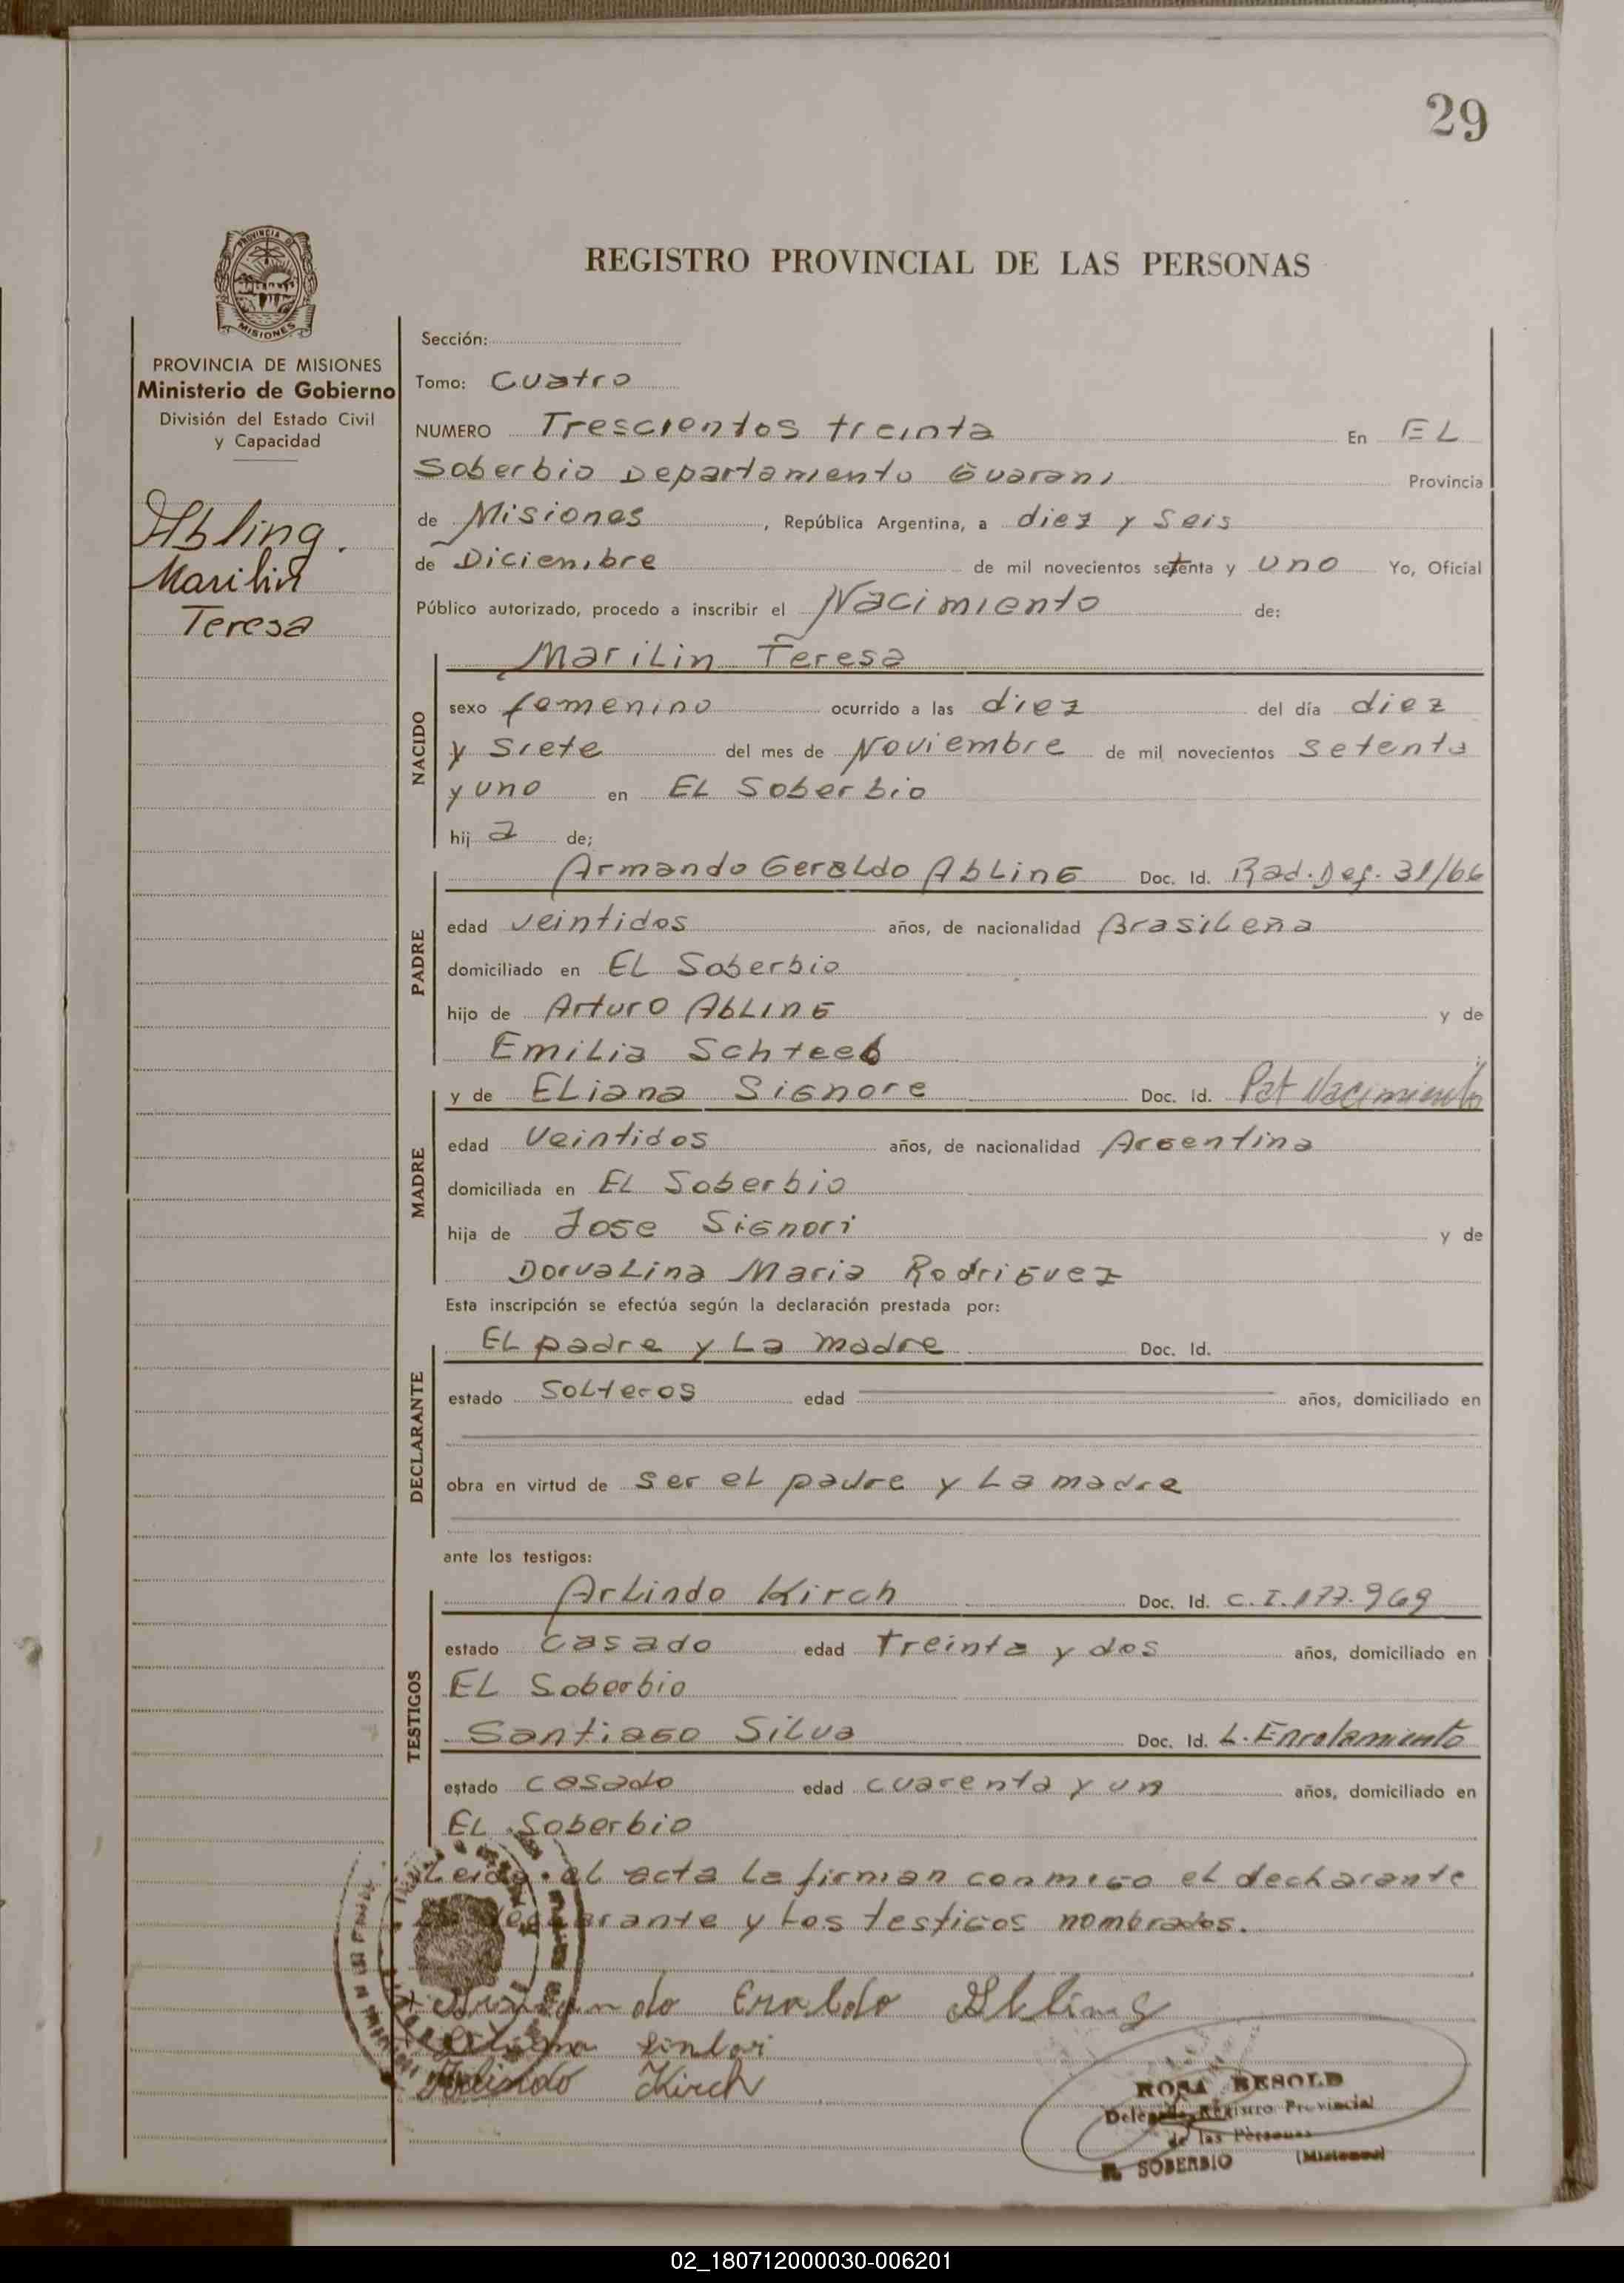 29
PROVINCIA DE
MISIONES
REGISTRO PROVINCIAL DE LAS PERSONAS
PROVINCIA DE MISIONES
Ministerio de Gobierno
División del Estado Civil
y Capacidad
Abling.
Marilin
Teresa
Sección:
Tomo: Cuatro
NUMERO Trescientos treinta En EL
Soberbio Departamento Guarani Provincia
de Misiones, República Argentina, a diez y seis
de Diciembre de mil novecientos setenta y uno Yo, Oficial
Público autorizado, procedo a inscribir el Nacimiento de:
NACIDO
Marilin Teresa
sexo femenino ocurrido a las diez del día diez
y siete del mes de Noviembre de mil novecientos setenta
y uno en EL Soberbio
hij a de;
PADRE
Armando Geraldo Abling Doc. Id. Rad. Def. 31/66
edad veintidos años, de nacionalidad Brasileña
domiciliado en EL Soberbio
hijo de Arturo Abling y de
Emilia Schteeb
MADRE
y de Eliana Signore Doc. Id. Pat Nacimiento
edad Veintidos años, de nacionalidad Argentina
domiciliada en EL Soberbio
hija de Jose Signori y de
Dorvalina Maria Rodriguez
Esta inscripción se efectúa según la declaración prestada por:
DECLARANTE
EL padre y La madre Doc. Id.
estado Solteros edad años, domiciliado en
obra en virtud de ser el padre y La madre
ante los testigos:
TESTIGOS
Arlindo Kirch Doc. Id. C.I.177.969
estado casado edad Treinta y dos años, domiciliado en
EL Soberbio
Santiago Silva Doc. Id. L. Enrolamiento
estado casado edad cuarenta y un años, domiciliado en
EL Soberbio
Leida el acta la firman conmigo el declarante
y los testigos nombrados.
Eraldo Abling
Kirch
ROSA BESOLD
Delegada Registro Provincial
de las Personas
EL SOBERBIO (Misiones)
02_180712000030-006201